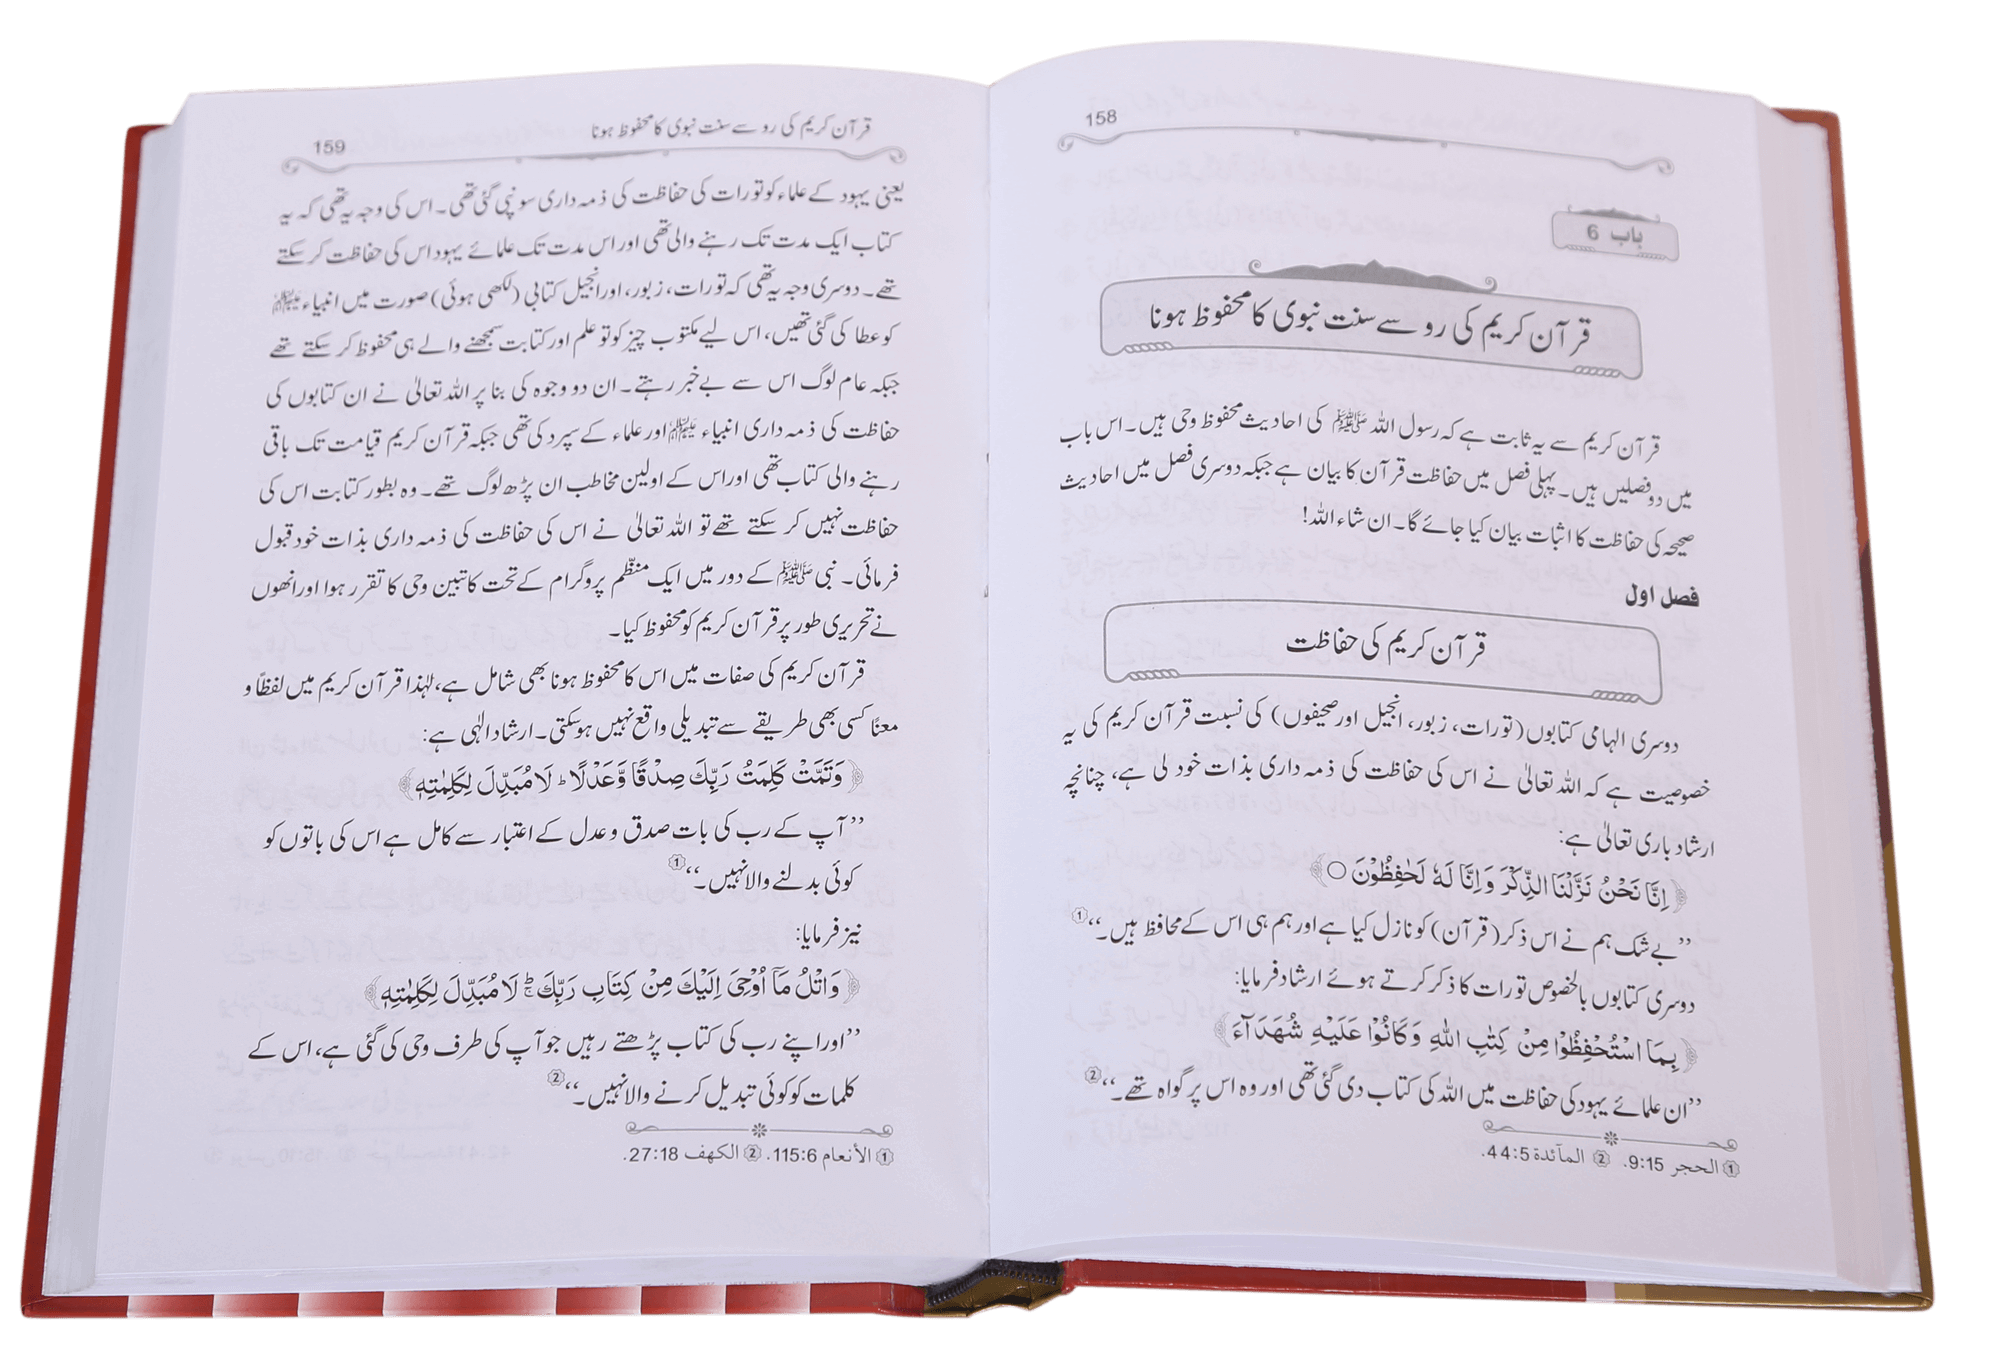 158
باب 6
قرآن کریم کی رو سے سنت نبوی کا محفوظ ہونا
قرآن کریم سے یہ ثابت ہے کہ رسول اللہ ﷺ کی احادیث محفوظ وحی ہیں۔ اس باب
میں دو فصلیں ہیں۔ پہلی فصل میں حفاظت قرآن کا بیان ہے جبکہ دوسری فصل میں احادیث
صحیحہ کی حفاظت کا اثبات بیان کیا جائے گا۔ ان شاء اللہ!
فصل اول
قرآن کریم کی حفاظت
دوسری الہامی کتابوں (تورات، زبور، انجیل اور صحیفوں) کی نسبت قرآن کریم کی یہ
خصوصیت ہے کہ اللہ تعالیٰ نے اس کی حفاظت کی ذمہ داری بذات خود لی ہے، چنانچہ
ارشاد باری تعالیٰ ہے:
﴿اِنَّا نَحْنُ نَزَّلْنَا الذِّكْرَ وَ اِنَّا لَهٗ لَحٰفِظُوْنَ ○﴾
’’بے شک ہم نے اس ذکر (قرآن) کو نازل کیا ہے اور ہم ہی اس کے محافظ ہیں۔‘‘ ①
دوسری کتابوں بالخصوص تورات کا ذکر کرتے ہوئے ارشاد فرمایا:
﴿بِمَا اسْتُحْفِظُوْا مِنْ كِتٰبِ اللّٰهِ وَ كَانُوْا عَلَيْهِ شُهَدَآءَ﴾
’’ان علمائے یہود کی حفاظت میں اللہ کی کتاب دی گئی تھی اور وہ اس پر گواہ تھے۔‘‘ ②
① الحجر 9:15. ② المآئدة 44:5.
قرآن کریم کی رو سے سنت نبوی کا محفوظ ہونا 159
یعنی یہود کے علماء کو تورات کی حفاظت کی ذمہ داری سونپی گئی تھی۔ اس کی وجہ یہ تھی کہ یہ
کتاب ایک مدت تک رہنے والی تھی اور اس مدت تک علمائے یہود اس کی حفاظت کر سکتے
تھے۔ دوسری وجہ یہ تھی کہ تورات، زبور، اور انجیل کتابی (لکھی ہوئی) صورت میں انبیاء علیہم السلام
کو عطا کی گئی تھیں، اس لیے مکتوب چیز کو تو علم اور کتابت سمجھنے والے ہی محفوظ کر سکتے تھے
جبکہ عام لوگ اس سے بے خبر رہتے۔ ان دو وجوہ کی بنا پر اللہ تعالیٰ نے ان کتابوں کی
حفاظت کی ذمہ داری انبیاء علیہم السلام اور علماء کے سپرد کی تھی جبکہ قرآن کریم قیامت تک باقی
رہنے والی کتاب تھی اور اس کے اولین مخاطب ان پڑھ لوگ تھے۔ وہ بطور کتابت اس کی
حفاظت نہیں کر سکتے تھے تو اللہ تعالیٰ نے اس کی حفاظت کی ذمہ داری بذات خود قبول
فرمائی۔ نبی ﷺ کے دور میں ایک منظّم پروگرام کے تحت کاتبین وحی کا تقرر ہوا اور انھوں
نے تحریری طور پر قرآن کریم کو محفوظ کیا۔
قرآن کریم کی صفات میں اس کا محفوظ ہونا بھی شامل ہے، لہٰذا قرآن کریم میں لفظًا و
معنًا کسی بھی طریقے سے تبدیلی واقع نہیں ہو سکتی۔ ارشاد الٰہی ہے:
﴿وَ تَمَّتْ كَلِمَتُ رَبِّكَ صِدْقًا وَّ عَدْلًا ؕ لَا مُبَدِّلَ لِكَلِمٰتِهٖ﴾
’’آپ کے رب کی بات صدق و عدل کے اعتبار سے کامل ہے اس کی باتوں کو
کوئی بدلنے والا نہیں۔‘‘ ①
نیز فرمایا:
﴿وَ اتْلُ مَاۤ اُوْحِیَ اِلَيْكَ مِنْ كِتَابِ رَبِّكَ ؕۚ لَا مُبَدِّلَ لِكَلِمٰتِهٖ﴾
’’اور اپنے رب کی کتاب پڑھتے رہیں جو آپ کی طرف وحی کی گئی ہے، اس کے
کلمات کو کوئی تبدیل کرنے والا نہیں۔‘‘ ②
① الأنعام 115:6. ② الكهف 27:18.